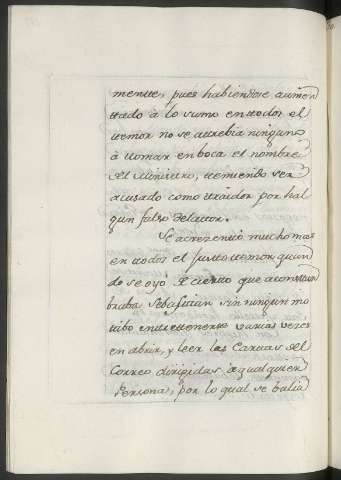 mente, pues habiendose aumen
tado à lo sumo en todos el
temor no se atrebia ninguno
à tomar en boca el nombre
del Ministro, temiendo ser
acusado como traidor por hal
gun falso delator.
Se acrezento mucho mas
en todos el justo temor quan
do se oyo de cierto que acostum
braba Sebastian sin ningun mo
tibo entretenerse varias vezes
en abrir, y leer las Cartas del
Correo dirigidas à qualquier
Persona, por lo qual se balia